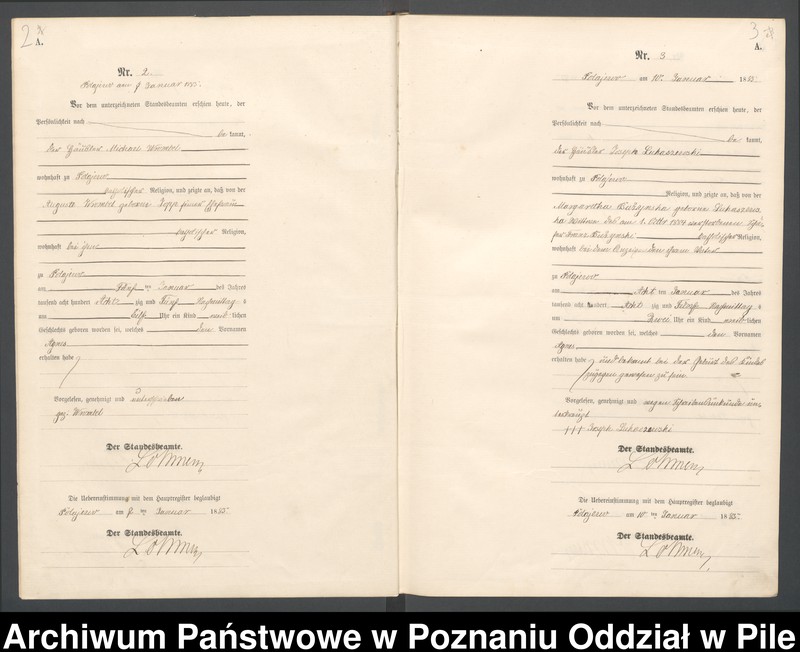 2
A.
Nr. 2
Polajewo am 9 Januar 1885.
Vor dem unterzeichneten Standesbeamten erschien heute, der
Persönlichkeit nach
be kannt,
der Händler Michael Wrembel
wohnhaft zu Polajewo
katholischer Religion, und zeigte an, daß von der
Auguste Wrembel geborene seiner Ehefrau
katholischer Religion,
wohnhaft bei ihm
zu Polajewo
am fünf ten Januar des Jahres
tausend acht hundert acht zig und fünf Nachmittag s
um elf Uhr ein Kind weib lichen
Geschlechts geboren worden sei, welches den Vornamen
Agnes
erhalten habe
Vorgelesen, genehmigt und unterschrieben
gez. Wrembel
Der Standesbeamte.
Die Uebereinstimmung mit dem Hauptregister beglaubigt
Polajewo am 9 ten Januar 1885.
Der Standesbeamte.
3
A.
Nr. 3
Polajewo am 10. Januar 1885.
Vor dem unterzeichneten Standesbeamten erschien heute, der
Persönlichkeit nach
be kannt,
der Händler Joseph Lukaszewski
wohnhaft zu Polajewo
Religion, und zeigte an, daß von der
Margaretha geborene
Wittwe des am 1. 1884 verstorbenen
katholischer Religion,
wohnhaft bei dem Anzeigenden ihrem Vater
zu Polajewo
am acht ten Januar des Jahres
tausend acht hundert acht zig und fünf Nachmittag s
um zwei Uhr ein Kind weib lichen
Geschlechts geboren worden sei, welches den Vornamen
Agnes
erhalten habe und bekannt bei der Geburt des Kindes
zugegen gewesen zu sein
Vorgelesen, genehmigt und wegen Schreibensunkunde un-
terkreuzt
+++ Joseph Lukaszewski
Der Standesbeamte.
Die Uebereinstimmung mit dem Hauptregister beglaubigt
Polajewo am 10 ten Januar 1885.
Der Standesbeamte.
Archiwum Państwowe w Poznaniu Oddział w Pile